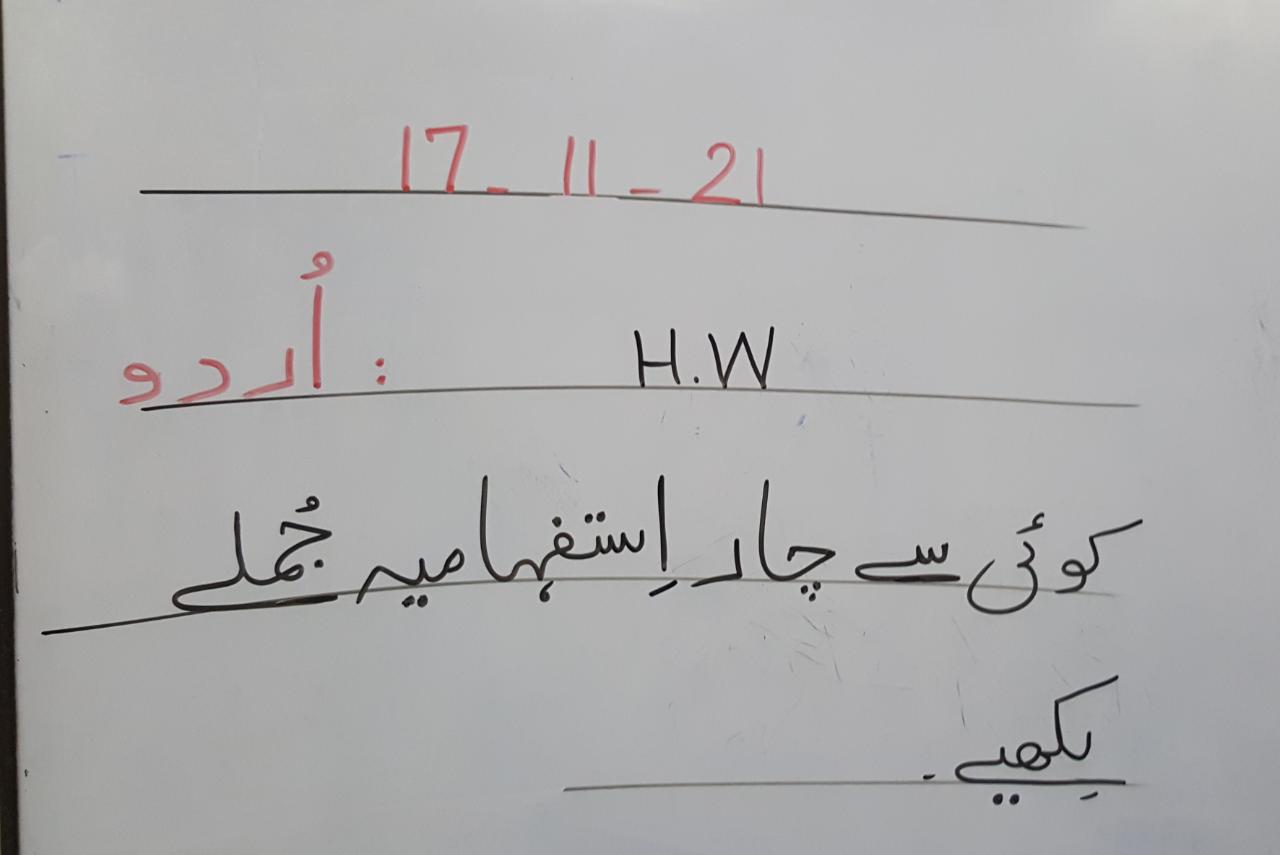 17 - 11 - 21
اُردو : H.W
کوئی سے چار اِستفہامیہ جُملے
لِکھیے.